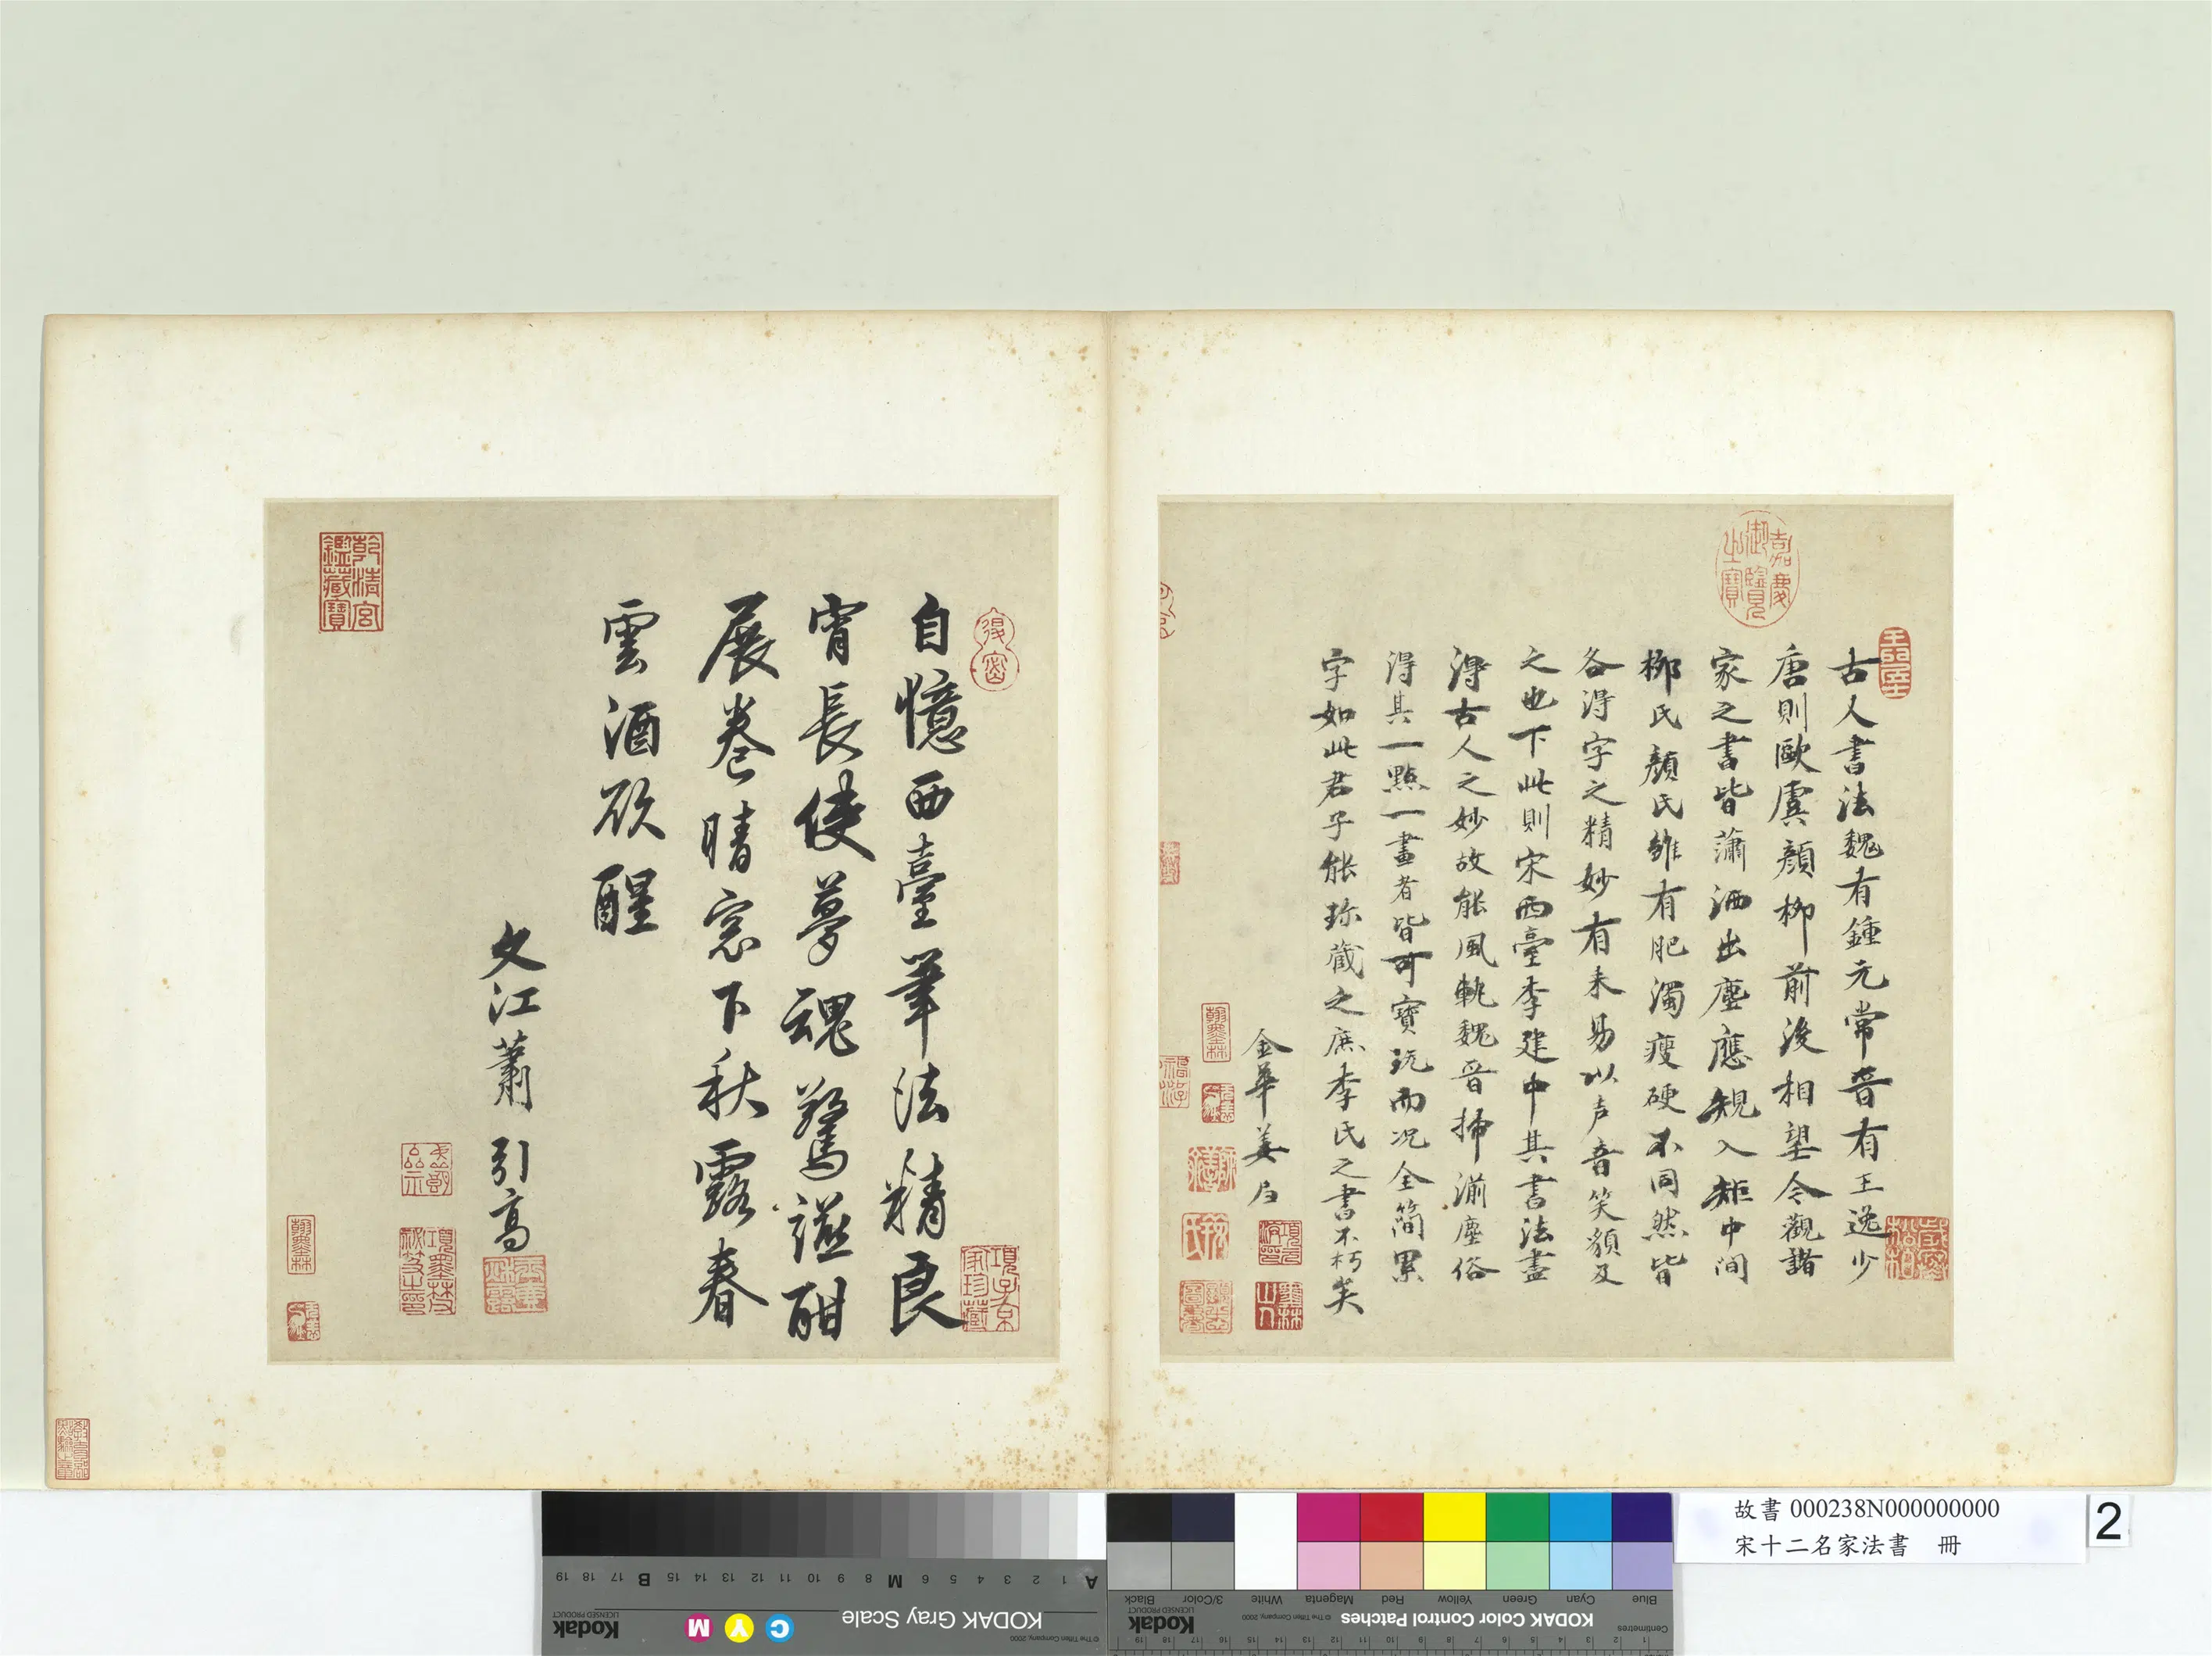 古人書法魏有鍾元常晉有王逸少
唐則歐虞顏柳前後相望今觀諸
家之書皆蕭洒出塵應規入矩中間
柳氏顏氏雖有肥濁瘦硬不同然皆
各得字之精妙有未易以声音笑貌及
之也下此則宋西臺李建中其書法盡
得古人之妙故能風軌魏晉掃湔塵俗
得其一點一畫者皆可寶玩而况全簡累
字如此君子能珍藏之庶李氏之書不朽矣
金華姜
嘉慶御覽之寶
自憶西臺筆法精良
宵長使夢魂驚謾酣
展卷晴窓下秋露春
雲酒欲醒
文江蕭引高
乾清宮鑑藏寶
項子京家珍藏
項墨林祕笈之印
翰墨林
故書 000238N000000000
宋十二名家法書 冊
2
KODAK Gray Scale
Kodak
LICENSED PRODUCT
C Y M
© The Tiffen Company, 2000
A 1 2 3 4 5 6 M 8 9 10 11 12 13 14 15 B 17 18 19
KODAK Color Control Patches
Kodak
LICENSED PRODUCT
© The Tiffen Company, 2000
Blue Cyan Green Yellow Red Magenta White 3/Color Black
Centimetres